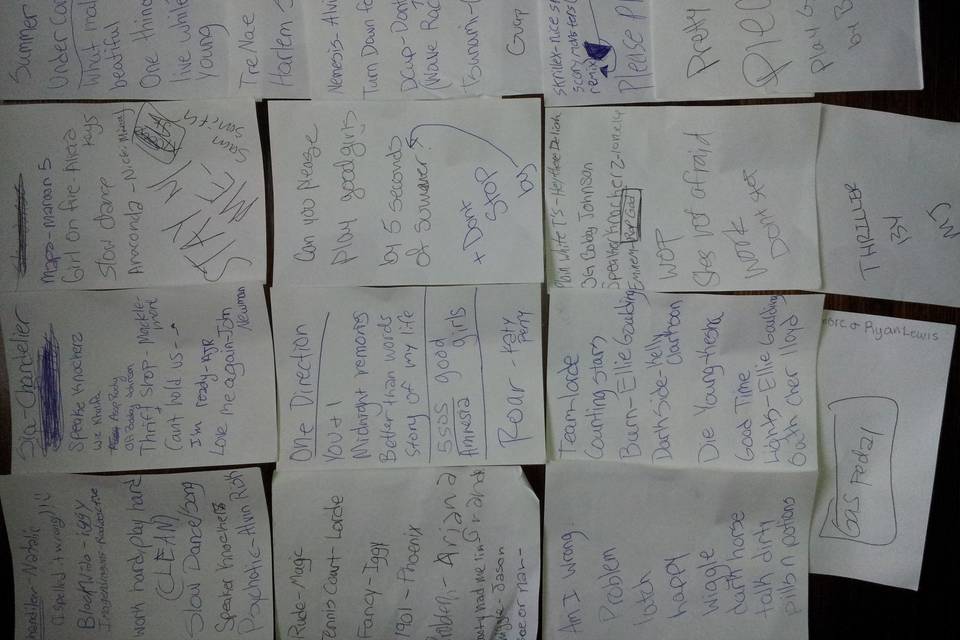 Summer
Under Co
What mak
beatiful
One thing
live while
young
Tre Nae
Harlem S
Nemesis-Alvin
Turn Down fo
(Wave Rac
Guap
remix
Please Pl
Pretty
Plea
Play G
by B
Maps-maroon 5
Girl on fire-Alicia
Keys
Slow dance
Anaconda-Nicki Minaj
Can you please
Play good girls
by 5 seconds
of summer?
+ Don't
STOP
by
Plain White T's-Hey there Deliah
Oh Baby Johnson
Speaker Knocherz-lonely
Eminem-Rap God
WOP
Shes not afraid
Work
Dont stop
THRILLER
BY
MJ
Sia-Chandelier
Speaker Knockerz
Thrift Shop-Mackle-
more
Can't hold us-
I'm ready-AJR
Love me again-John
Newman
One Direction
You & I
Midnight memories
Better than words
Story of my life
5SOS good
Amnesia girls
Roar-Katy
Perry
Team-Lorde
Counting stars
Burn-Ellie Goulding
Darkside-Kelly
Clarkson
Die Young-Kesha
Good Time
Lights-Ellie Goulding
Oath Cher lloyd
more & Ryan Lewis
Gas pedal
Chandelier-Natalie
(I spelled it wrong)
Black Widow-iggy
Imagine dragons-Radioactive
work hard/play hard
(CLEAN)
Slow Dance/Song
Speaker knockerz
Psychotic-Alvin Roth
Rude-Magic
Tennis Court-Lorde
Fancy-Iggy
1901-Phoenix
Problem-Ariana
Grande
Wiggle-Jason
Am I wrong
Problem
latch
happy
Wiggle
dark horse
talk dirty
pills n potions